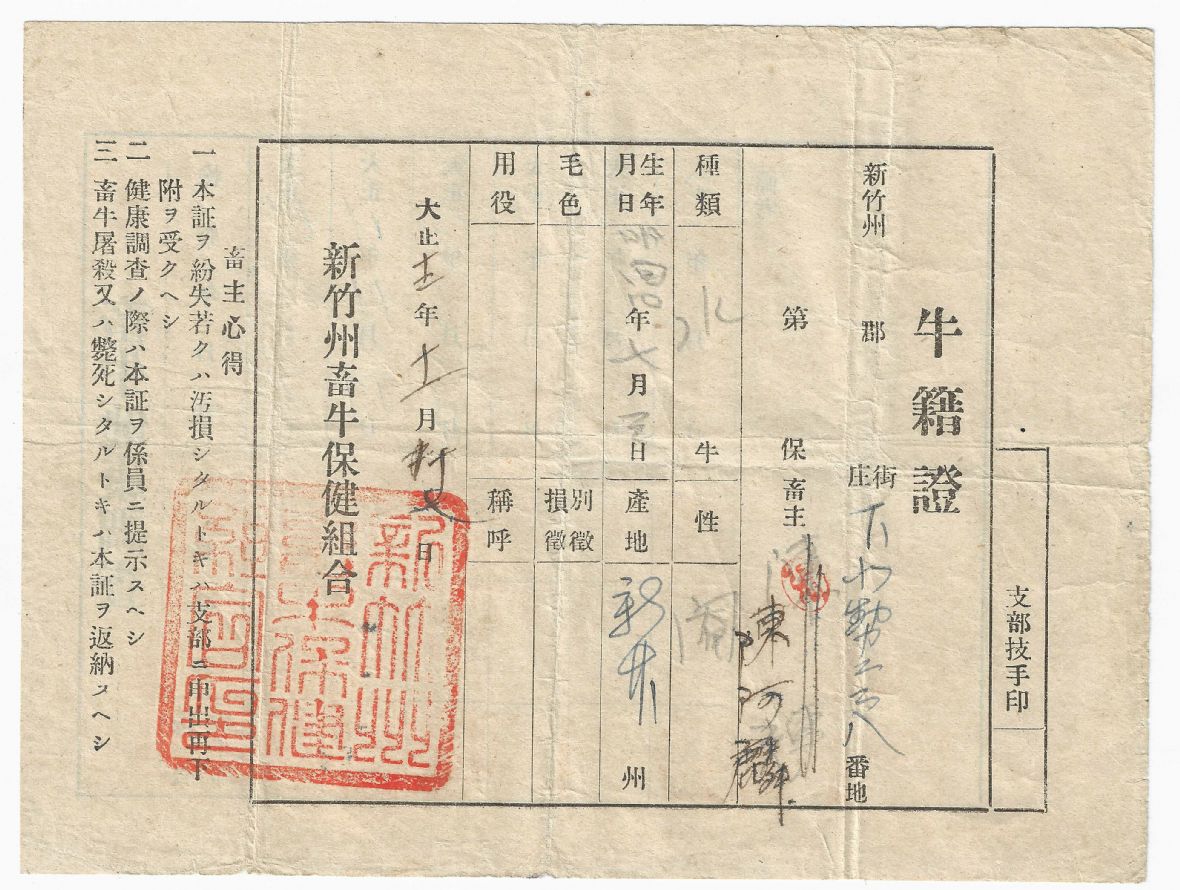 牛籍證
支部技手印
新竹州 郡 街庄 下十六勢二六八 番地
第 保 畜主 陳河麟
種類 水 牛性 閹
生年月日 昭四年七月 日 產地 新竹州
毛色 別徵 損徵
用役 稱呼
大正 年 月 日
新竹州畜牛保健組合
新竹州畜牛保健組合印
畜主心得
一 本証ヲ紛失若クハ汚損シタルトキハ支部ニ申出再下
附ヲ受クヘシ
二 健康調査ノ際ハ本証ヲ係員ニ提示スヘシ
三 畜牛屠殺又ハ斃死シタルトキハ本証ヲ返納スヘシ